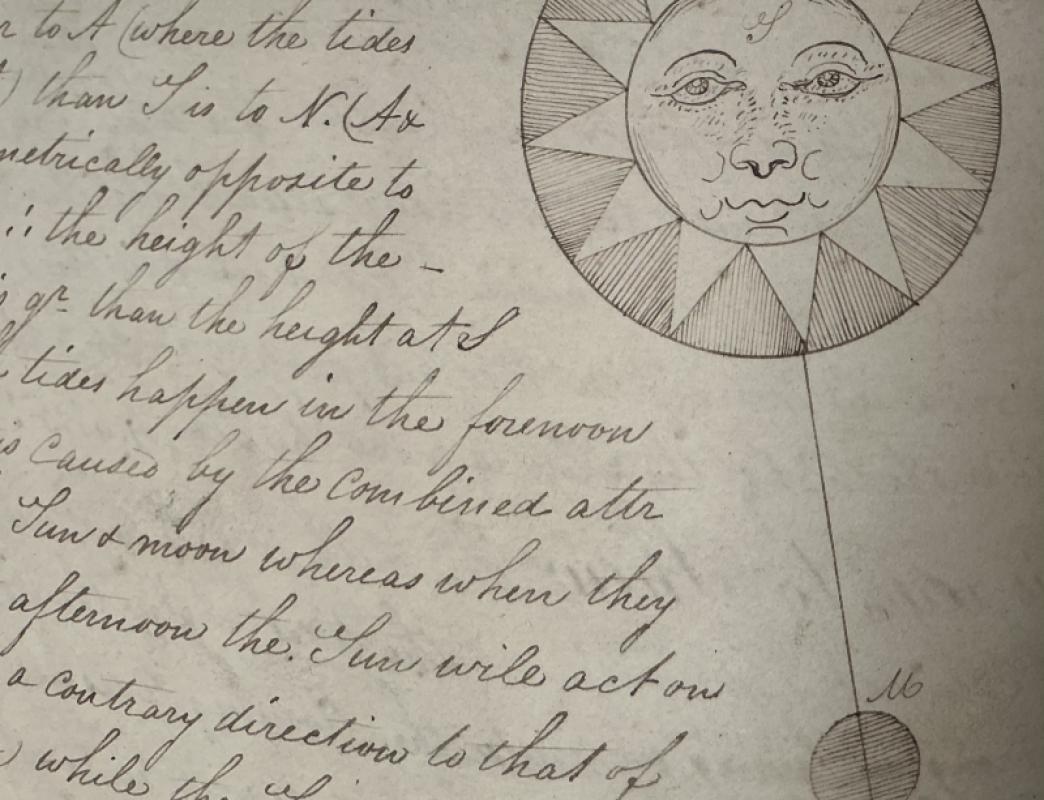 to A (where the tides
than S is to N. (A &
metrically opposite to
∴ the height of the -
gr than the height at S
tides happen in the forenoon
is caused by the combined attr
Sun & moon whereas when they
afternoon the Sun will act on
a contrary direction to that of
while the S
S
M